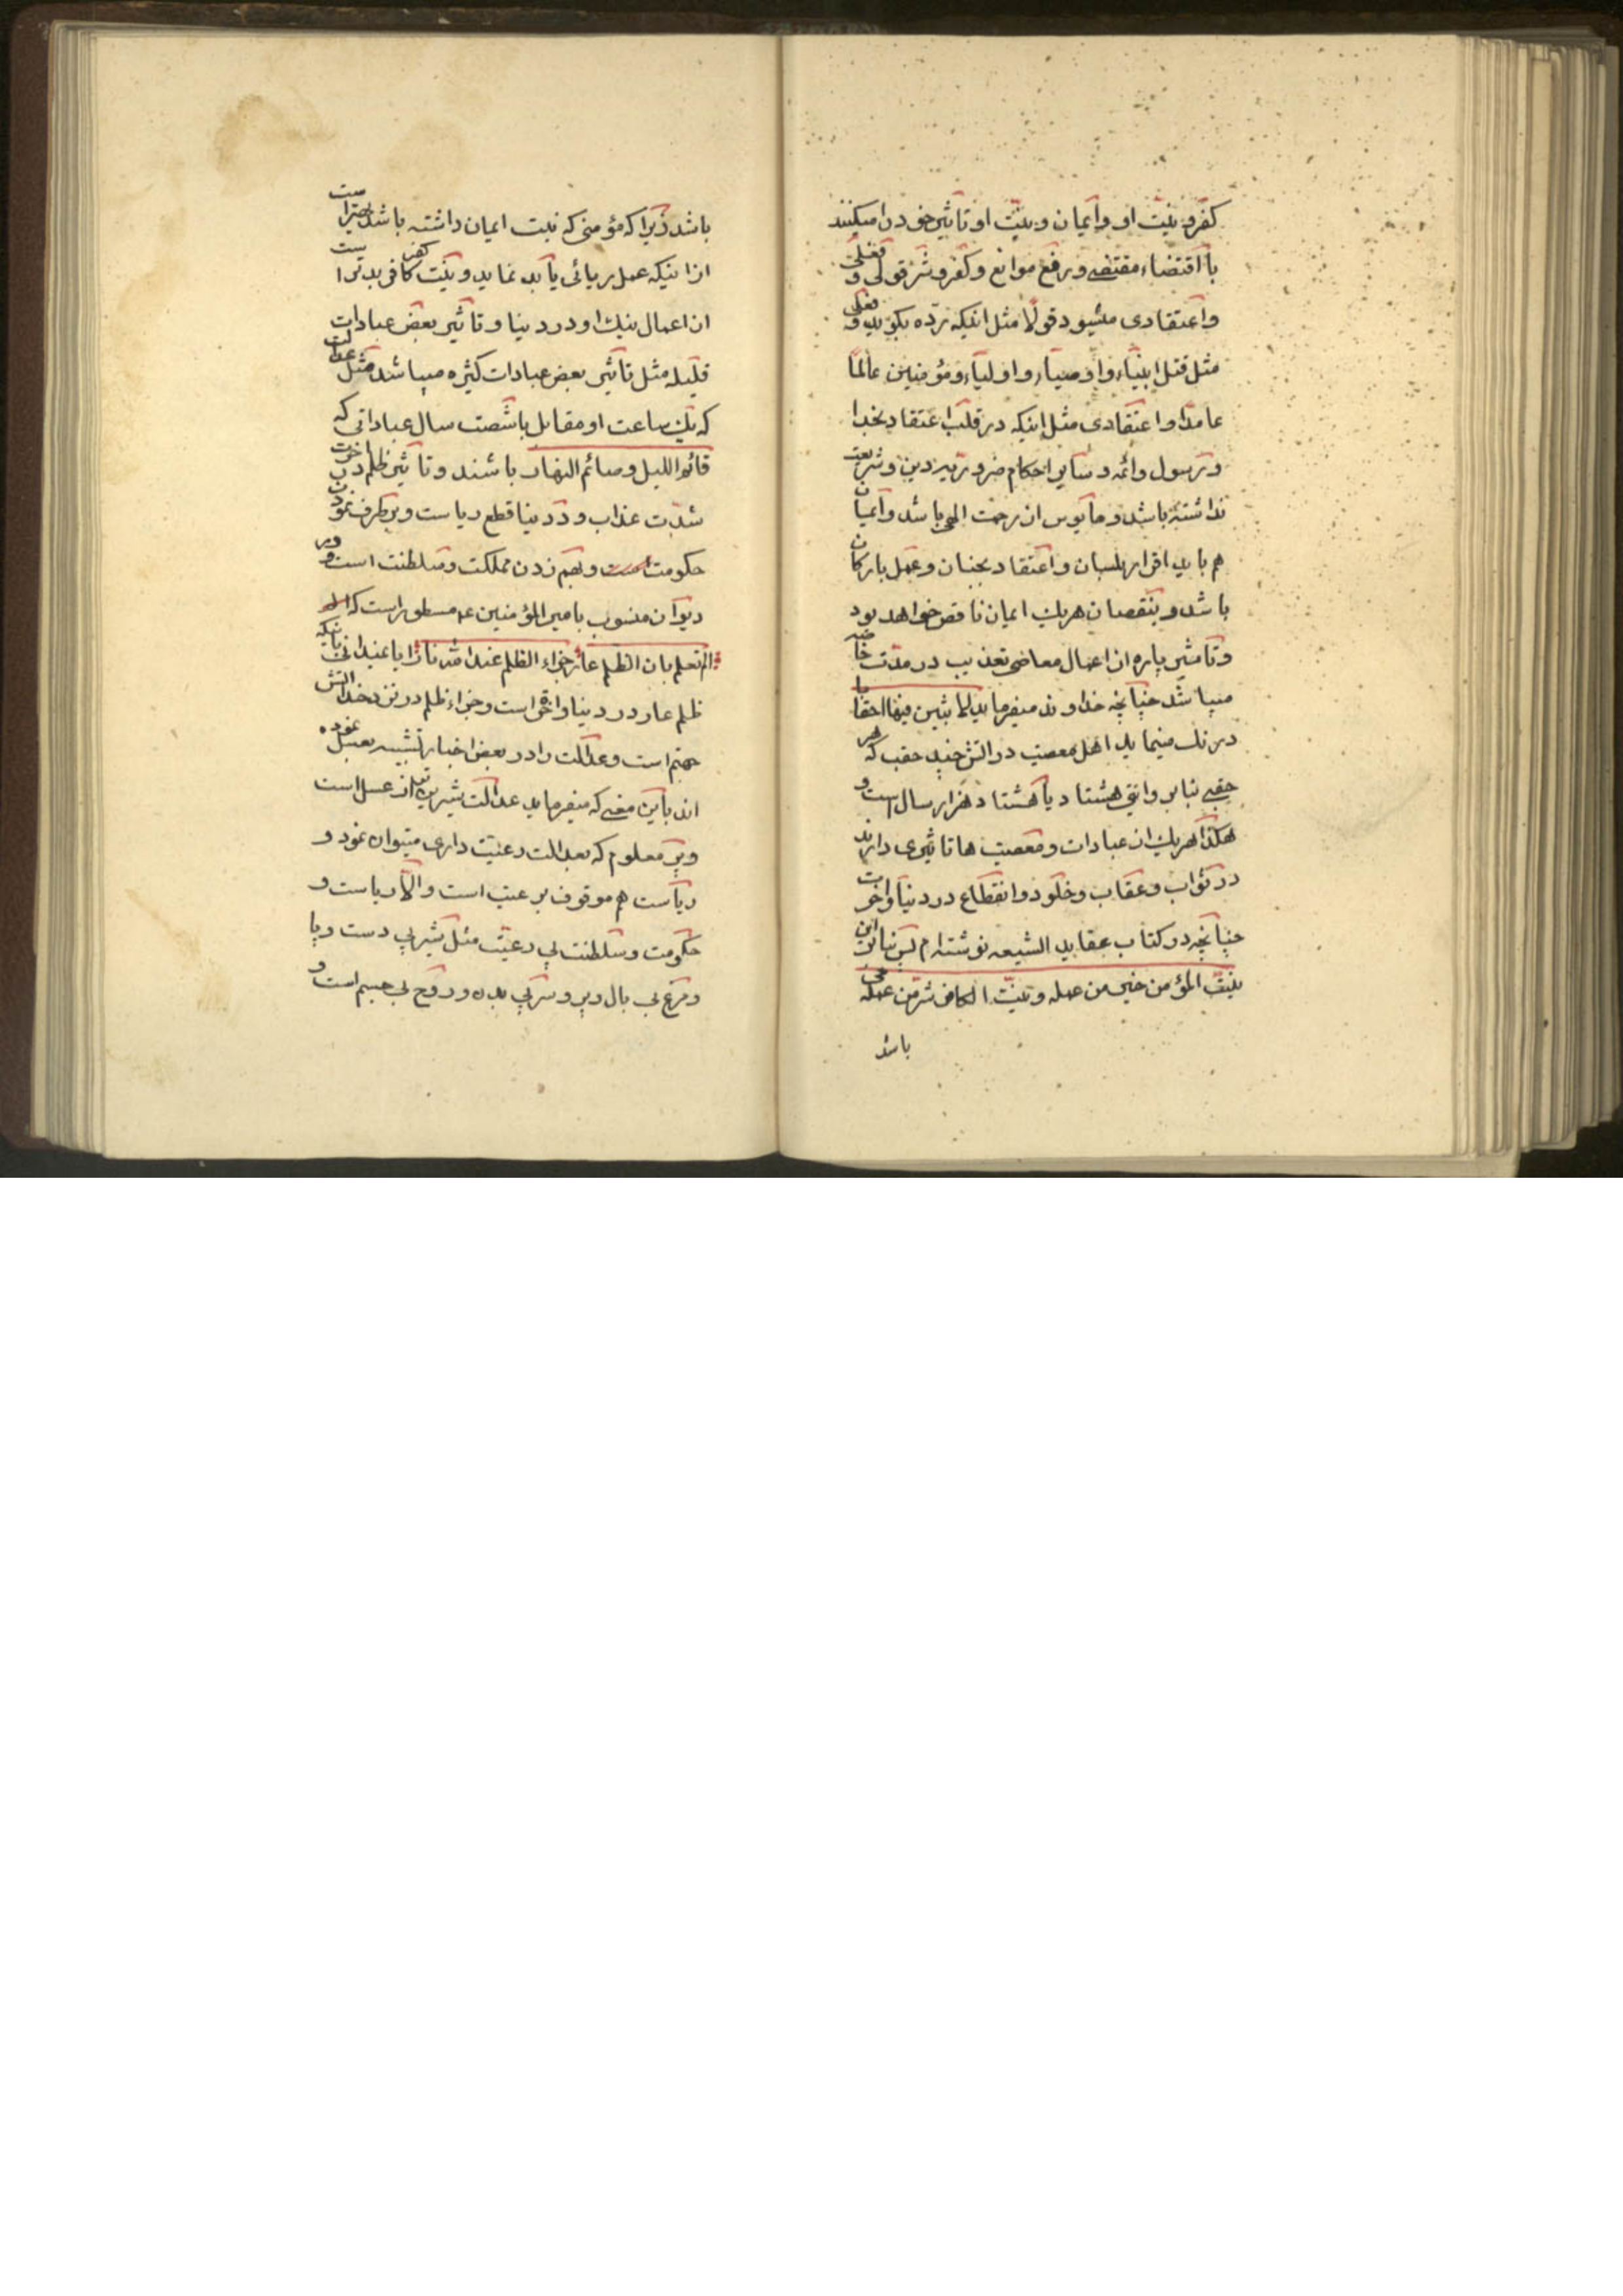 کفر و نیّت او و ایمان و نیّت او تاثیر خود را میکنند
با اقتضاء مقتضی و رفع موانع و کفر و شرّ قولی و فعلی
و اعتقادی میشود قولاً مثل اینکه ردّه بگوید و فعلی
مثل قتل انبیاء و اوصیاء و اولیاء و مؤمنین عالماً
عامداً و اعتقادی مثل اینکه در قلب اعتقاد بخدا
و رسول و ائمه و سایر احکام ضروریه دین و شریعت
نداشته باشد و مایوس از رحمت الهی باشد و ایمان
هم باید اقرار بلسان و اعتقاد بجنان و عمل بارکان
باشد و بنقصان هریک ایمان ناقص خواهد بود
و تاثیر پاره از اعمال معاصی تعذیب در مدّت
میباشد چنانچه خداوند میفرماید لابثین فیها احقابا
درنک مینماید اهل معصیت در اتش چند حقب که هر
حقبی بنا بر وایتی هشتاد یا هشتاد هزار سال است و
هکذا هریک از عبادات و معصیت ها تاثیری دارند
در ثواب و عقاب و خلود و انقطاع در دنیا و اخرت
چنانچه در کتاب عقاید الشیعه نوشته ام پس بنا براین
نیّت المؤمن خیر من عمله و نیّت الکافر شرّ من عمله
باشد
باشد زیرا که مؤمنی که نیت ایمان داشته باشد بهتر است
از اینکه عمل ریائی یا بد نماید و نیّت کفر کافر بدتر است
از اعمال نیک او در دنیا و تاثیر بعض عبادات
قلیله مثل تاثیر بعض عبادات کثیره میباشد مثل عدالت
که یک ساعت او مقابل با شصت سال عباداتی که
قائم اللیل و صائم النهار باشند و تاثیر ظلم در اخرت
شدّت عذاب و در دنیا قطع ریاست و برطرف نمودن
حکومت و بهم زدن مملکت و سلطنت است و در
دیوان منسوب بامیر المؤمنین ع مسطور است که
الم تعلم بان الظلم عار جزاء الظلم عند الله نار ایا نمیدانی اینکه
ظلم عار در دنیا و اخر است و جزاء ظلم در نزد خدا اتش
جهنم است و عدالت را در بعض اخبار تشبیه بعسل نموده
اند باین معنی که میفرماید عدالت شیرین تر از عسل است
و پر معلوم که بعدالت رعیّت داری میتوان نمود و
ریاست هم موقوف بر عیت است و الّا ریاست و
حکومت و سلطنت بی رعیّت مثل شیر بی دست و پا
و مرغ بی بال و پر و سر بی بدن و روح بی جسم است و